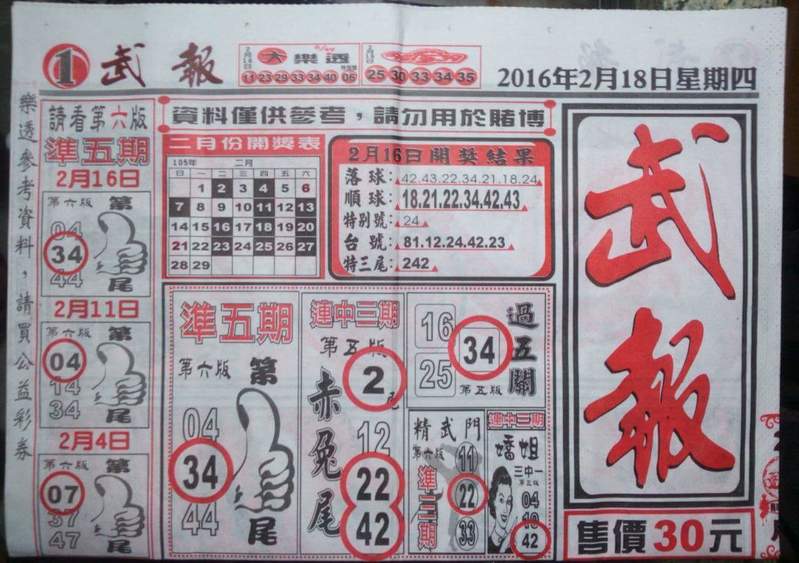 1 武報
大樂透
11 23 29 33 34 40 05
25 30 33 34 35
2016年2月18日星期四
資料僅供參考，請勿用於賭博
樂透參考資料，請買公益彩券
請看第六版
準五期
2月16日
第六版 第
04
34
44 尾
2月11日
第六版 第
04
14
34 尾
2月4日
第六版 第
07
37
47 尾
二月份開獎表
105年 二月
日 一 二 三 四 五 六
1 2 3 4 5 6
7 8 9 10 11 12 13
14 15 16 17 18 19 20
21 22 23 24 25 26 27
28 29
2月16日開獎結果
落球：42.43.22.34.21.18.24
順球：18.21.22.34.42.43
特別號：24
台號：81.12.24.42.23
特三尾：242
準五期
第六版 第
04
34
44 尾
連中三期
第五版
赤兔尾
2尾
12
22
42
16
25
34
第五版
過五關
精武門
第六版
準三期
11
22
33
連中三期
嬌姐
三中一
第五版
04
42
武報
售價30元